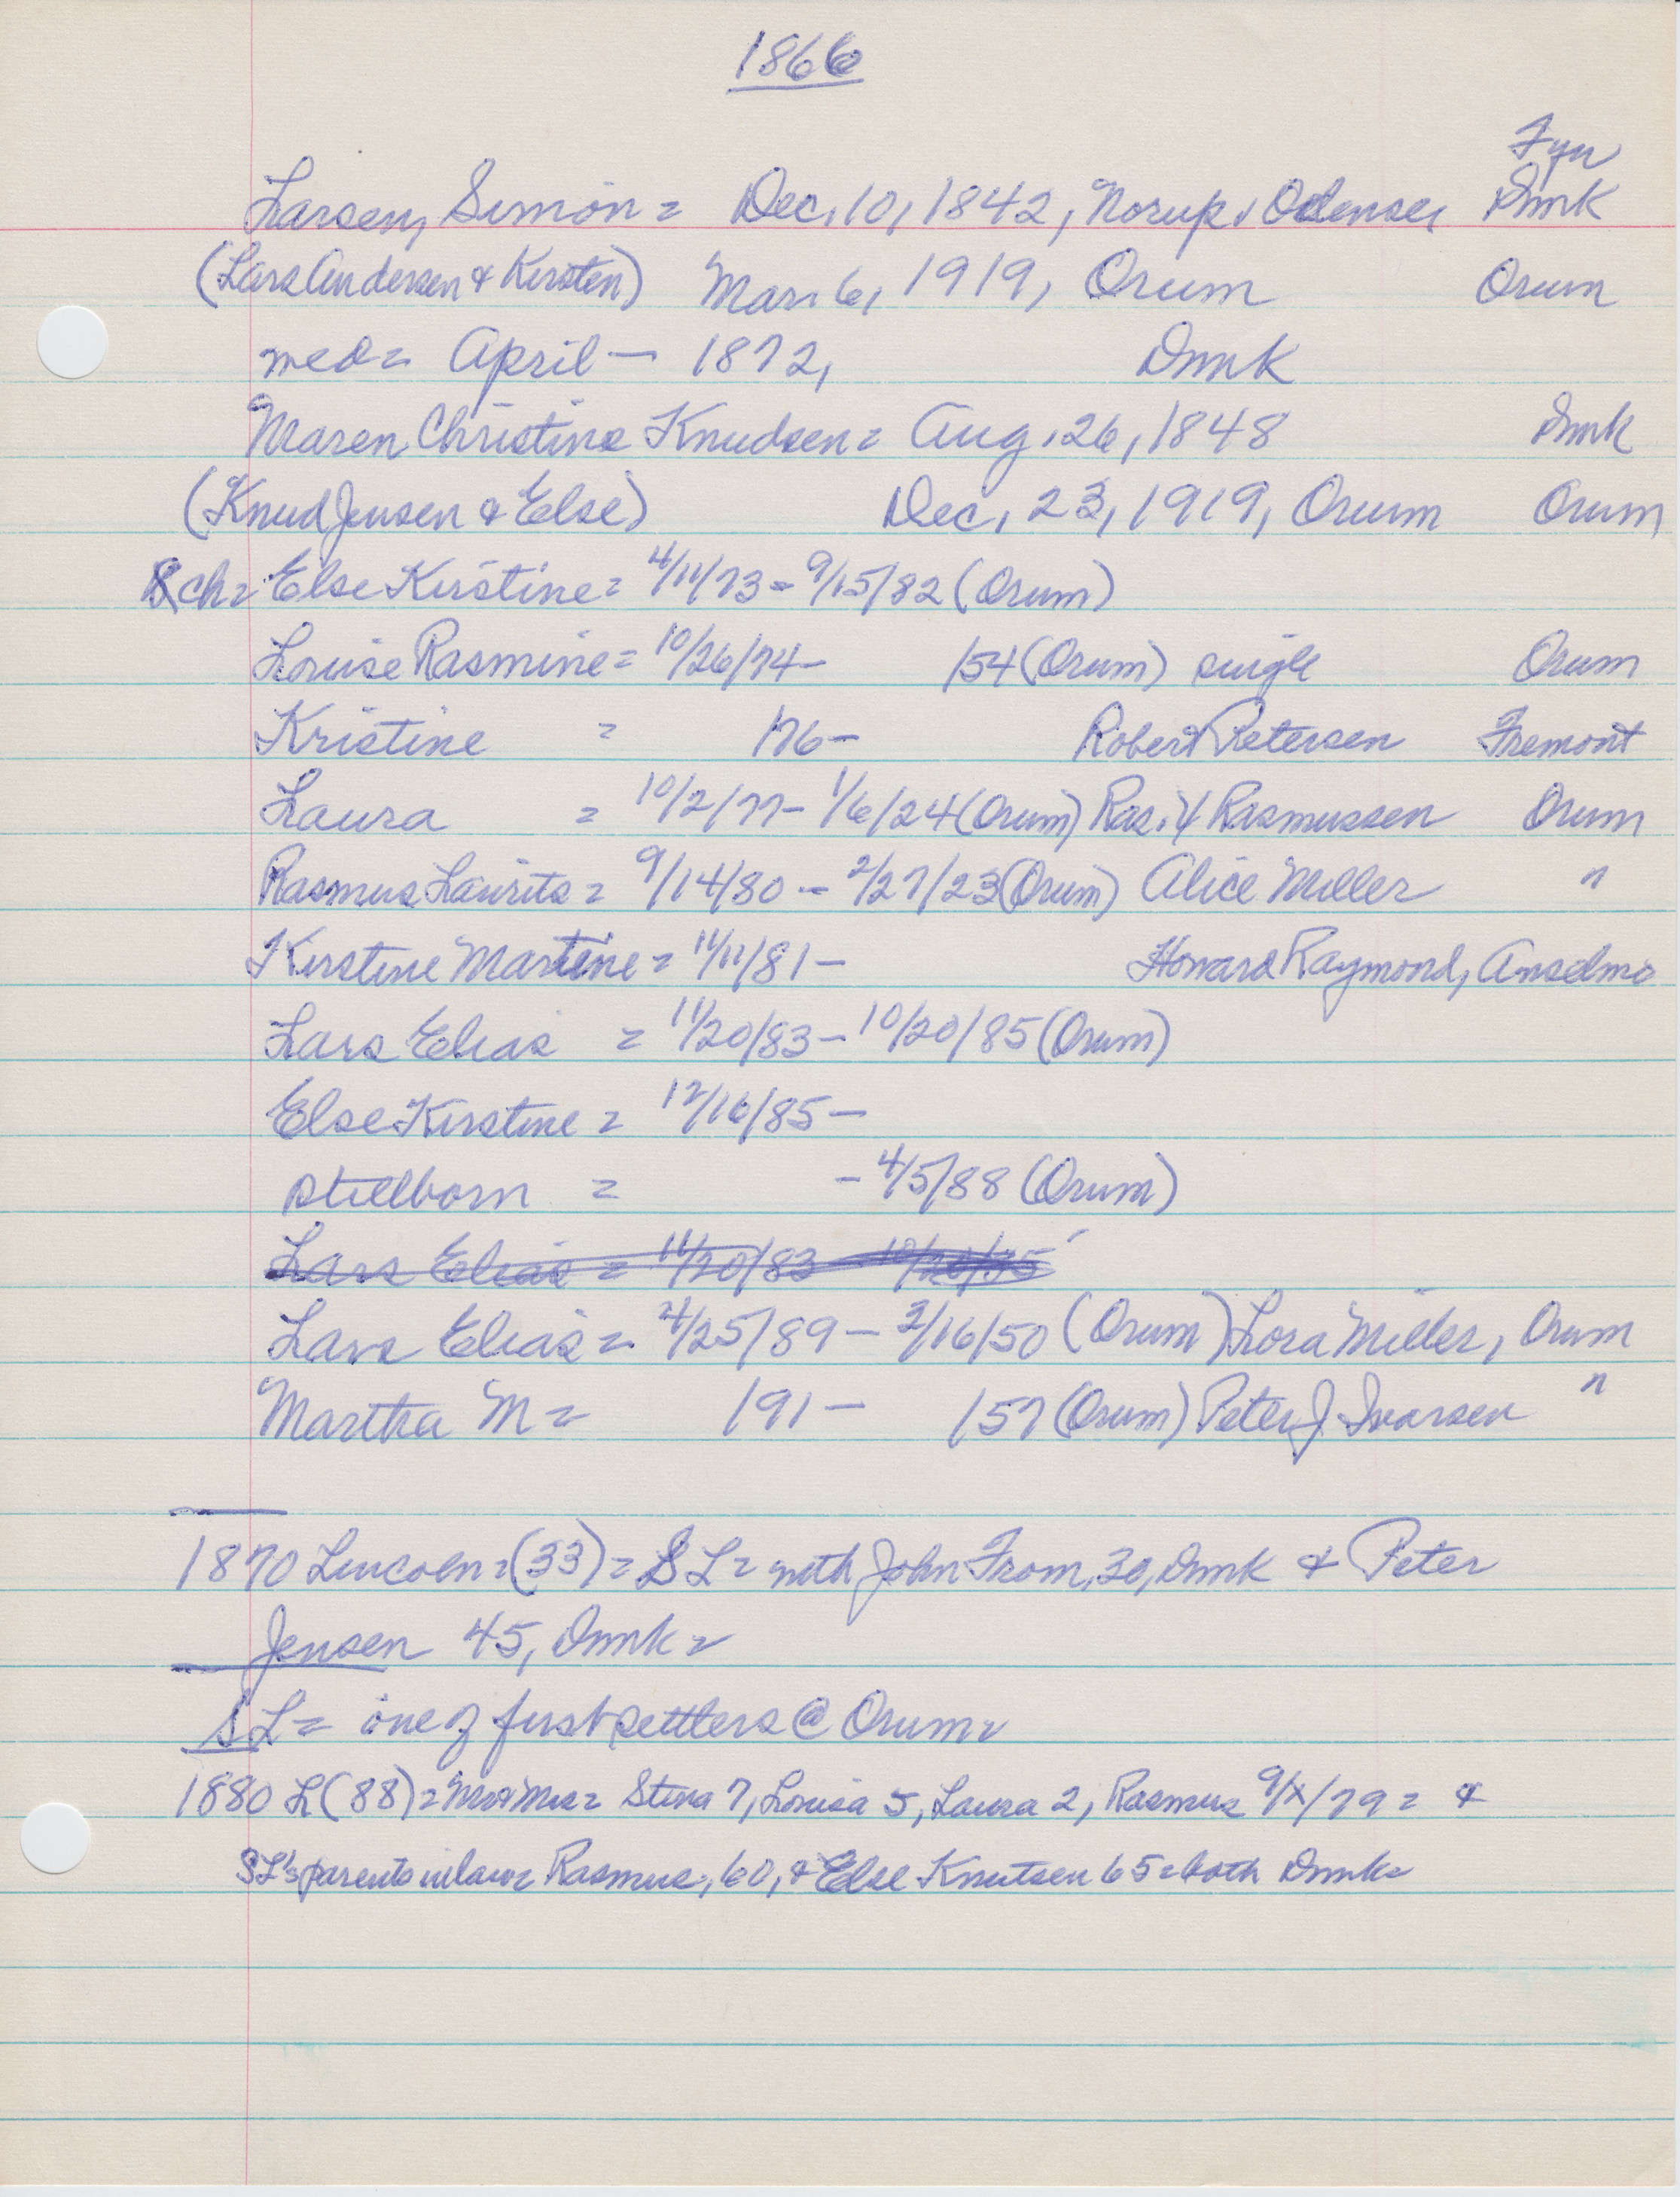 1866
Fyn
Larsen, Simon = Dec. 10, 1842, Norup, Odense, Dnmk
(Lars Andersen & Kirsten) Mar. 6, 1919, Orum Orum
med = April — 1872, Dnmk
Maren Christine Knudsen = Aug. 26, 1848 Dnmk
(Knud Jensen & Else) Dec. 23, 1919, Orum Orum
ch = Else Kirstine = 4/11/73 - 9/15/82 (Orum)
Louise Rasmine = 10/26/74 - /54 (Orum) single Orum
Kristine = /76 - Robert Petersen Fremont
Laura = 10/2/77 - 1/6/24 (Orum) Ras. Rasmussen Orum
Rasmus Laurits = 9/14/80 - 2/27/23 (Orum) Alice Miller "
Kirstine Martine = 11/11/81 - Howard Raymond, Anselmo
Lars Elias = 11/20/83 - 10/20/85 (Orum)
Else Kirstine = 12/16/85 -
stillborn = - 4/5/88 (Orum)
Lars Elias = 11/20/83 - 10/20/85
Lars Elias = 4/25/89 - 2/16/50 (Orum) Lora Miller, Orum
Martha M = /91 - /57 (Orum) Peter J Ivarsen "
1870 Lincoln = (33) = SL = with John From, 30, Dnmk & Peter
Jensen 45, Dnmk =
SL = one of first settlers @ Orum =
1880 L (88) = Mr & Mrs = Stena 7, Louisa 5, Laura 2, Rasmus 9/x/79 = &
SL's parents in law = Rasmus, 60, & Else Knutsen 65 = both Dnmk =